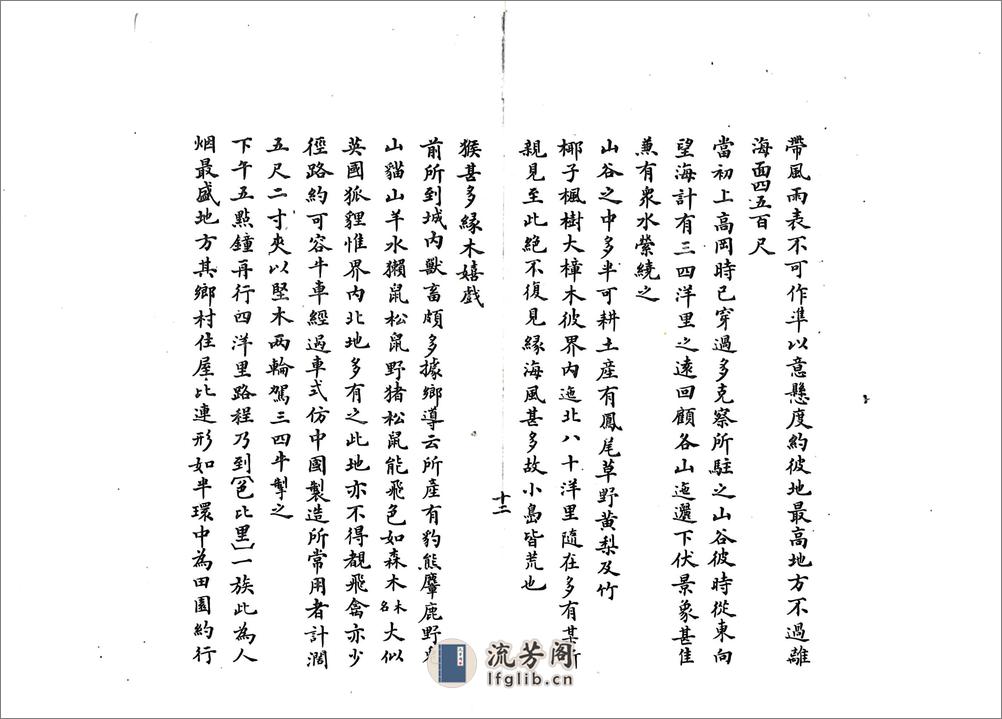 帶風雨表不可作準以意懸度約彼地最高地方不過離
海面四五百尺
當初上高岡時已穿過多克察所駐之山谷彼時從東向
望海計有三四洋里之遠回顧各山迤邐下伏景象甚佳
兼有衆水縈繞之
山谷之中多半可耕土産有鳳尾草野黄梨及竹
椰子楓樹大樟木彼界内迤北八十洋里隨在多有其所
親見至此絶不復見緣海風甚多故小島皆荒也
十二
猴甚多緣木嬉戲
前所到城内獸畜頗多據鄉導云所産有豹熊麞鹿野
山貓山羊水獺鼠松鼠野猪松鼠能飛色如森木木名大似
英國狐狸惟界内北地多有之此地亦不得覩飛禽亦少
徑路約可容牛車經過車式仿中國製造所常用者計濶
五尺二寸夾以堅木兩輪駕三四牛掣之
下午五點鐘再行四洋里路程乃到[色比里]一族此為人
烟最盛地方其鄉村住屋比連形如半環中為田園約行
流芳阁
lfglib.cn